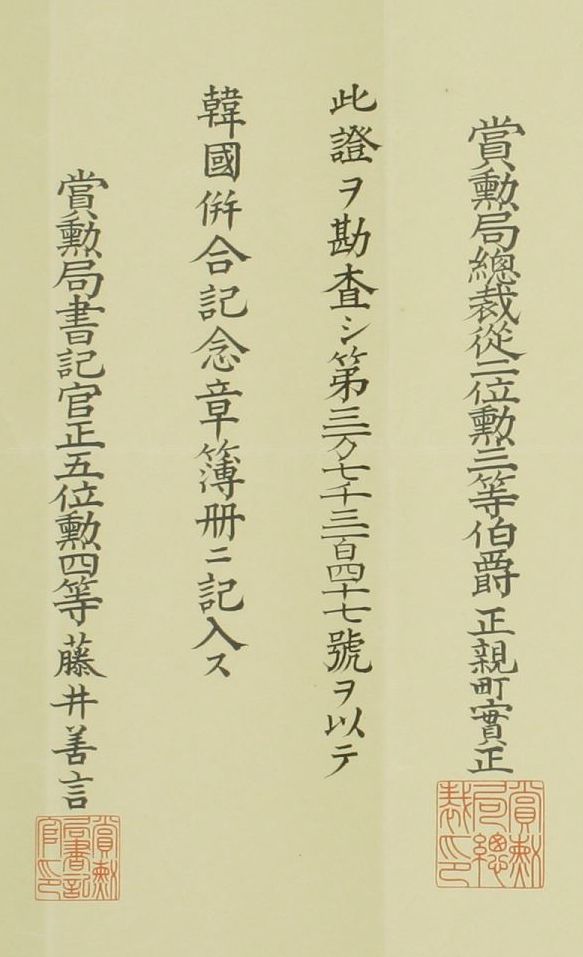 賞勲局總裁從二位勲三等伯爵正親町實正
此證ヲ勘査シ第三万七千三百四十七號ヲ以テ
韓國併合記念章簿册ニ記入ス
賞勲局書記官正五位勲四等藤井善言
賞勲局總裁印
賞勲局書記官印